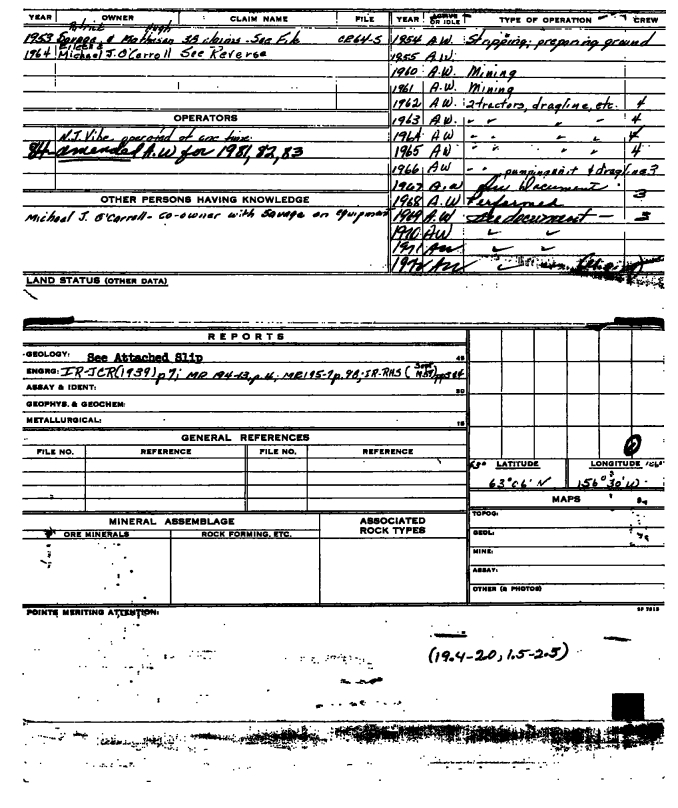 YEAR OWNER CLAIM NAME FILE
Patrick Hugh
1953 Savage & Matheson 33 claims - See File CE64-5
Eileen &
1964 Michael J. O'Carroll See Reverse
OPERATORS
N.J. Vibe operated at one time
84- amended A.W for 1981, 82, 83
OTHER PERSONS HAVING KNOWLEDGE
Michael J. O'Carroll - co-owner with Savage on equipment
YEAR ACTIVE OR IDLE TYPE OF OPERATION CREW
1954 A.W. Stripping; preparing ground
1955 A.W.
1960 A.W. Mining
1961 A.W. Mining
1962 A.W. 2 tractors, dragline, etc. 4
1963 A.W. " " " " 4
1964 A.W " " " " 4
1965 A.W " " " " 4
1966 AW " " pumping unit & dragline 3
1967 A.W See Document
1968 A.W Performed 3
1969 A.W See document - 3
1970 AW " "
1971 AW " "
1972 AW "
LAND STATUS (OTHER DATA)
REPORTS
GEOLOGY: See Attached Slip
ENGRG: IR-JCR(1939) p7; MR 194-13, p.16; MR195-7 p.98; IR-RHS (Sept 1957) pp384
ASSAY & IDENT:
GEOPHYS. & GEOCHEM:
METALLURGICAL:
GENERAL REFERENCES
FILE NO. REFERENCE FILE NO. REFERENCE
LATITUDE LONGITUDE
63°06' N 156°30' W
MAPS
TOPOG:
GEOL:
MINE:
ASSAY:
OTHER (& PHOTOS)
MINERAL ASSEMBLAGE ASSOCIATED ROCK TYPES
ORE MINERALS ROCK FORMING, ETC.
POINTS MERITING ATTENTION:
(19.4-20, 1.5-2.5)